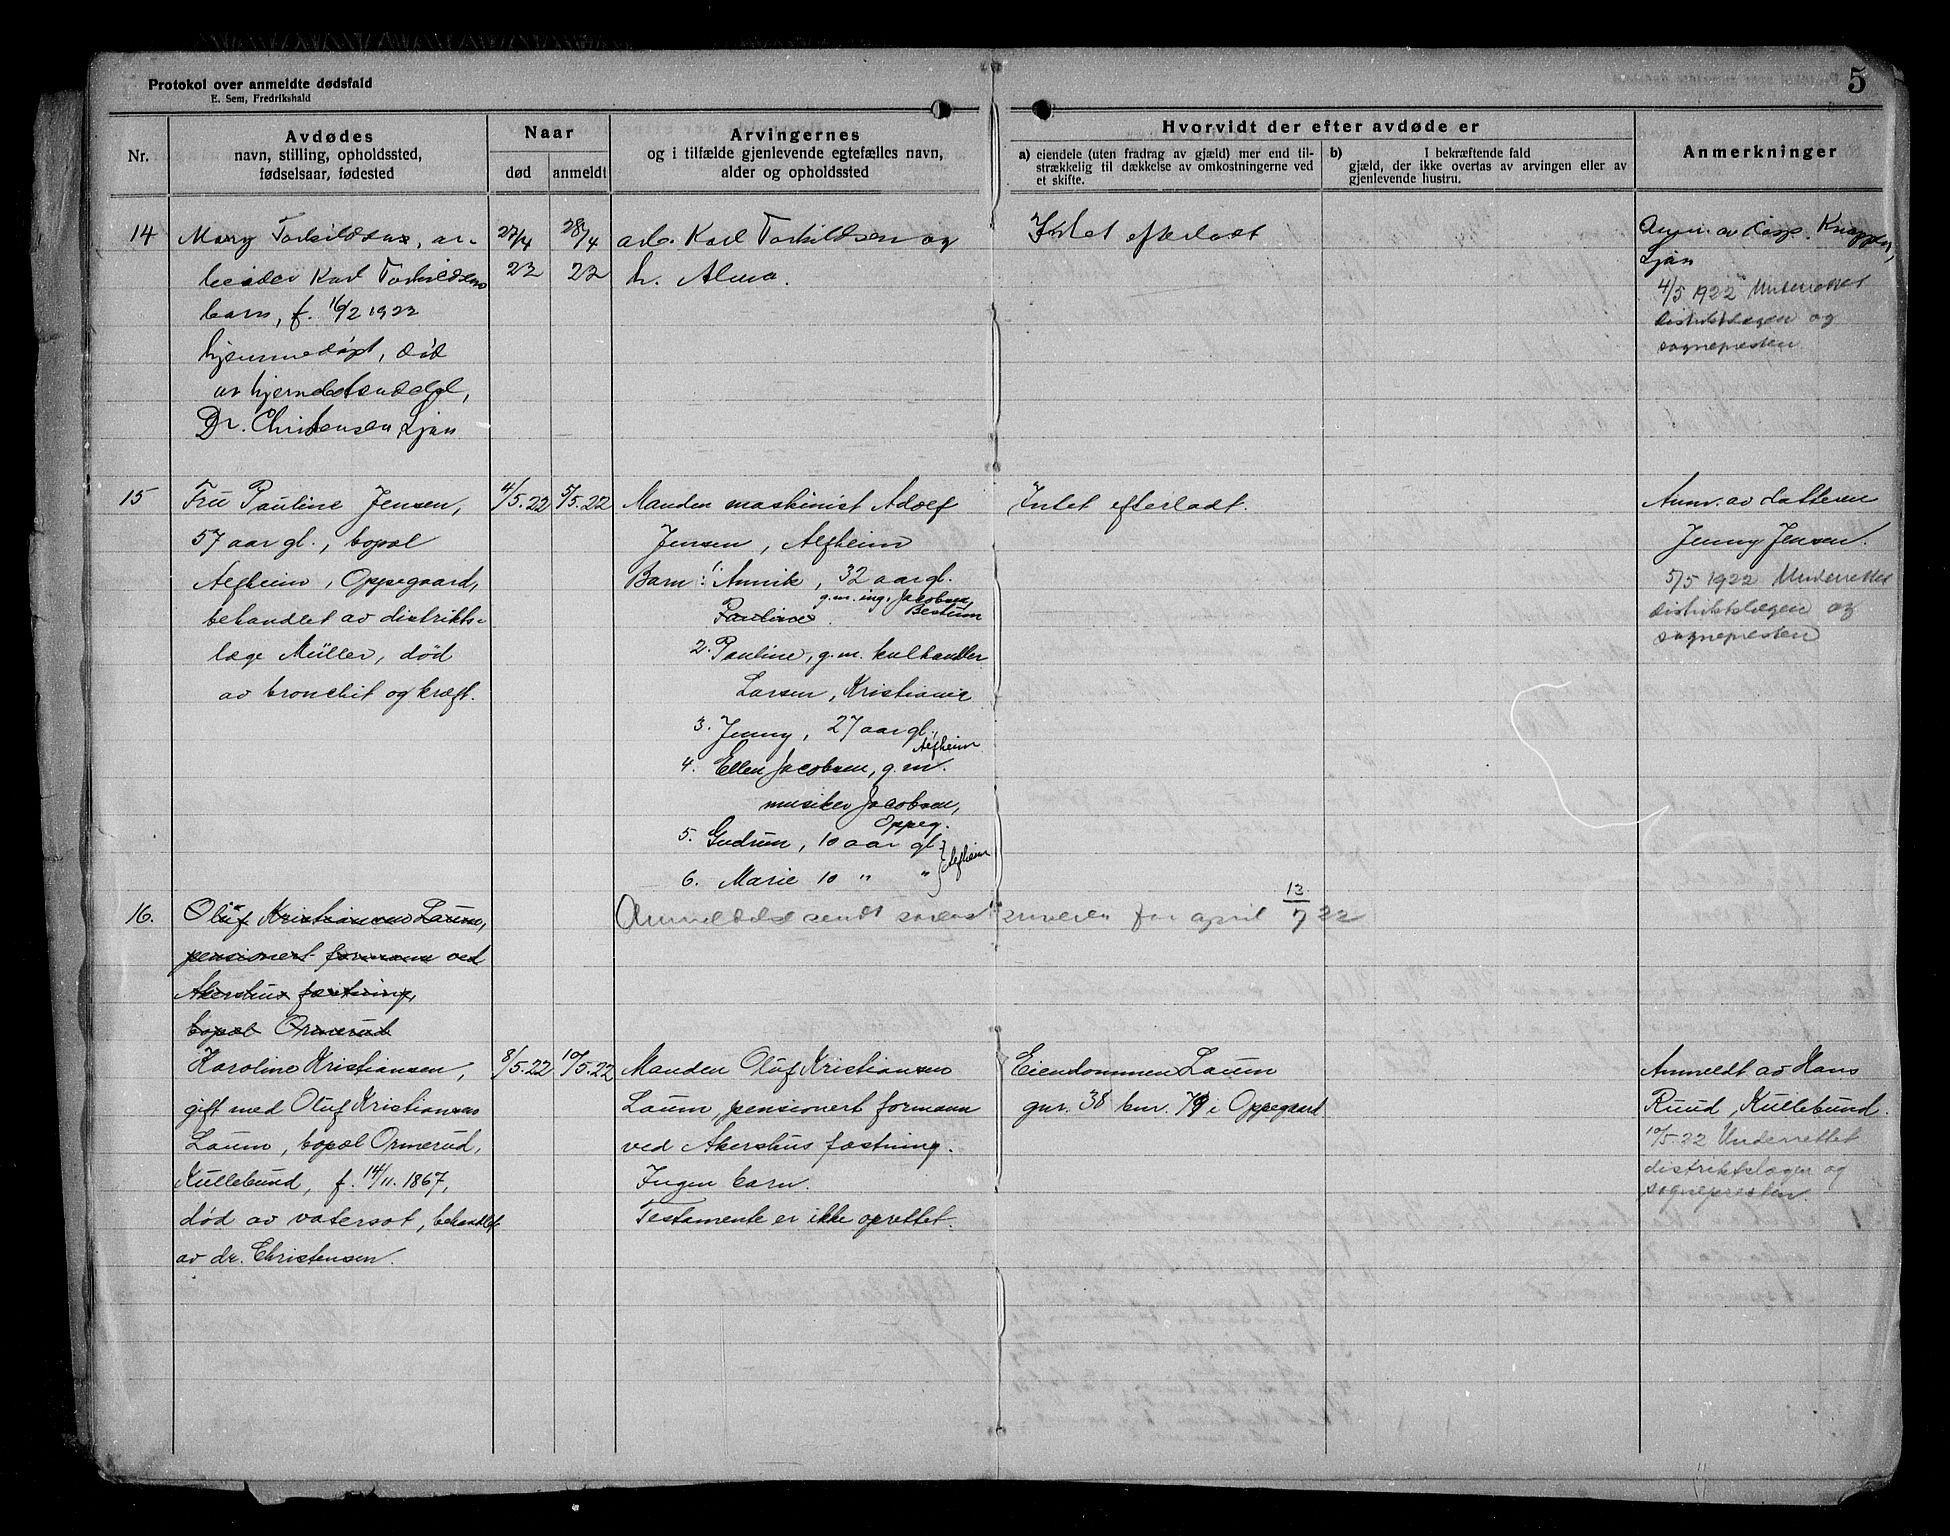 Protokol over anmeldte dødsfald
E. Sem, Fredrikshald
5
Nr.
Avdødes
navn, stilling, opholdssted,
fødselsaar, fødested
Naar
død
anmeldt
Arvingernes
og i tilfælde gjenlevende egtefælles navn,
alder og opholdssted
Hvorvidt der efter avdøde er
a) eiendele (uten fradrag av gjæld) mer end til-
strækkelig til dækkelse av omkostningerne ved
et skifte.
b) I bekræftende fald
gjæld, der ikke overtas av arvingen eller av
gjenlevende hustru.
Anmerkninger
14
Mary Torkildsens, ar-
beider Karl Torkildsens
barn, f. 16/2 1922
hjemmedøpt, død
av
Dr. Christensen Ljan
27/4
22
28/4
22
arb. Karl Torkildsen og
h. Alma.
Intet efterladt
Anm. av
Ljan
4/5 1922 Underrettet
distriktslægen og
sognepresten
15
Fru Pauline Jensen,
57 aar gl., bopæl
Alfheim, Oppegaard,
behandlet av distrikts-
læge Müller, død
av bronchit og kræft.
4/5.22
5/5.22
Manden maskinist Adolf
Jensen, Alfheim
Barn: 1. Annik, 32 aar gl.
g.m. ing. Jacobsen,
Pauline. Bestum
2. Pauline, g.m. kulhandler
Larsen, Kristiania
3. Jenny, 27 aar gl.,
Alfheim
4. Ellen Jacobsen, g.m.
musiker Jacobsen,
Oppeg.
5. Gudrun, 10 aar gl. } Alfheim
6. Marie 10 " "
Intet efterladt.
Anm. av datteren
Jenny Jensen.
5/5 1922 Underrettet
distriktslægen og
sognepresten
16.
Oluf Kristiansens Laum,
pensionert formann ved
Akershus fæstning,
bopæl Ormerud
Anmeldelse sendt sorenskriveren for april 13/7 22
Karoline Kristiansen,
gift med Oluf Kristiansens
Laum, bopæl Ormerud,
Kullebund, f. 14/11. 1867,
død av vatersot, behandlet
av dr. Christensen.
8/5.22
10/5.22
Manden Oluf Kristiansen
Laum, pensionert formann
ved Akershus fæstning.
Ingen barn.
Testamente er ikke oprettet.
Eiendommen Laum
gnr. 38 bnr. 79 i Oppegaard
Anmeldt av Hans
Ruud, Kullebund.
10/5.22 Underrettet
distriktslægen og
sognepresten.